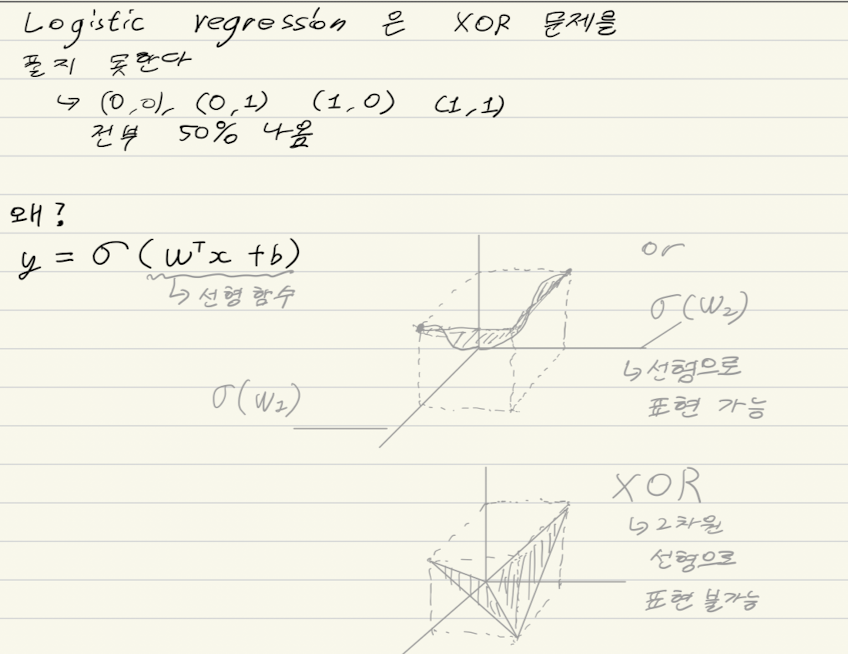 Logistic regression 은 XOR 문제를
풀지 못한다
↳ (0,0), (0,1) (1,0) (1,1)
전부 50% 나옴
왜?
y = σ(wᵀx + b)
↳ 선형 함수
or
σ(w₂)
↳ 선형으로
표현 가능
σ(w₁)
XOR
↳ 2차원
선형으로
표현 불가능